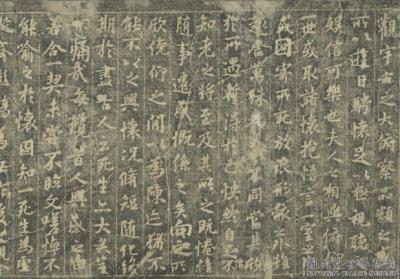 觀宇宙之大俯察品類
所以遊目騁懷足以極視聽
娛信可樂也夫人之相
一世或取諸懷抱悟言
或因寄所託放浪形骸之外雖
趣舍萬殊靜躁不同當其
於所遇暫得於己快然自
知老之將至及其所之既惓情
隨事遷感慨係之矣向之所
欣俛仰之間以為陳迹猶不
能不以之興懷況脩短隨化終
期於盡古人云死生亦大矣
不痛哉每攬昔人興感之由
若合一契未嘗不臨文嗟悼不
能喻之於懷固知一死生為虛